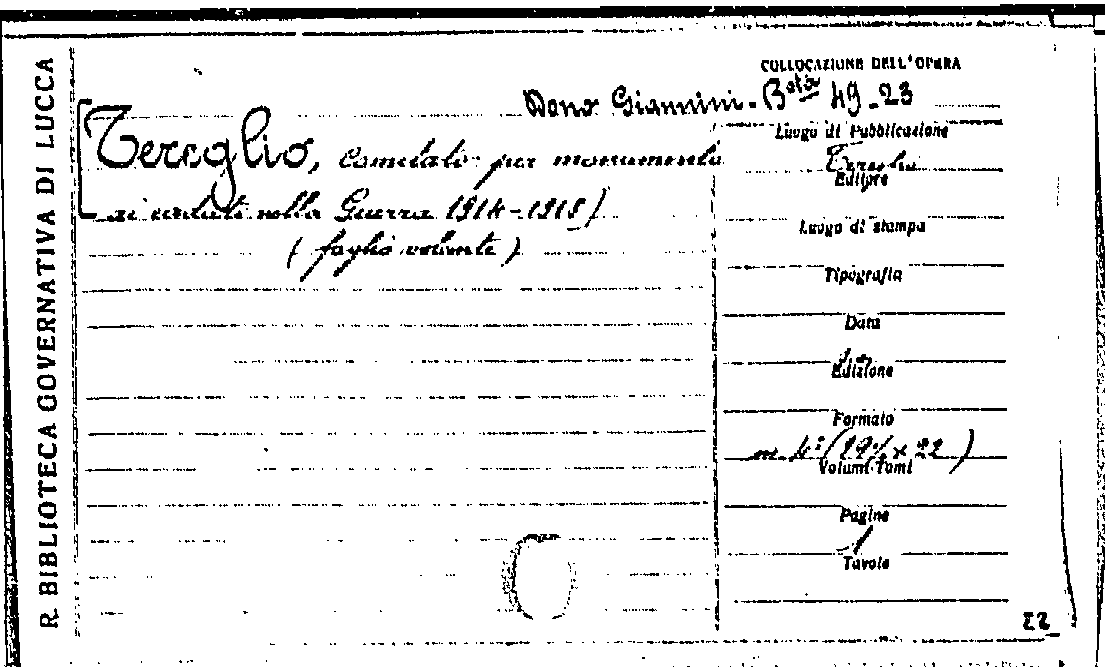 R. BIBLIOTECA GOVERNATIVA DI LUCCA
COLLOCAZIONE DELL'OPERA
Dono Giannini - Bsta 49-23
[Tereglio, Comitato per monumento
ai caduti nella Guerra 1914-1918]
(foglio volante)
Luogo di Pubblicazione
Tereglio
Editore
Luogo di stampa
Tipografia
Data
Edizione
Formato
in 4°
× 22)
Volumi-Tomi
Pagine
1
Tavole